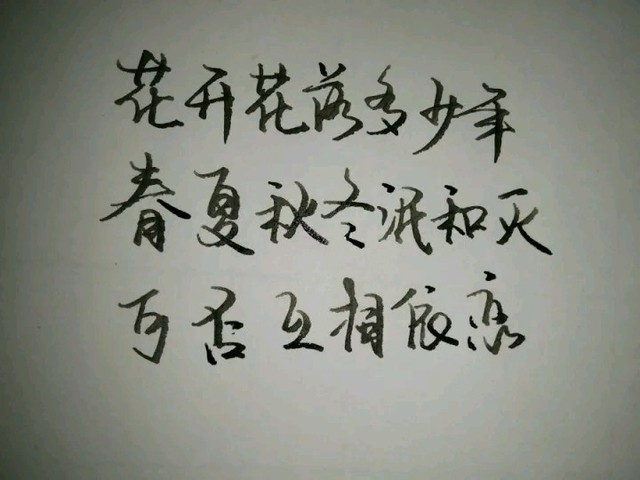 花开花落多少年
春夏秋冬泯和灭
可否互相依恋